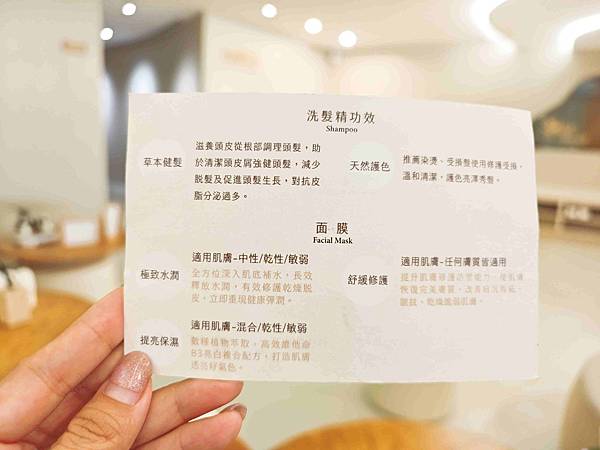 洗髮精功效
Shampoo
草本健髮
滋養頭皮從根部調理頭髮，助
於清潔頭皮屑強健頭髮，減少
脫髮及促進頭髮生長，對抗皮
脂分泌過多。
天然護色
推薦染燙、受損髮使用修護受損，
溫和清潔，護色亮澤秀髮。
面膜
Facial Mask
極致水潤
適用肌膚-中性/乾性/敏弱
全方位深入肌底補水，長效
釋放水潤，有效修護乾燥脫
皮，立即重現健康彈潤。
舒緩修護
適用肌膚-任何膚質皆適用
提升肌膚修護防禦能力，使肌膚
恢復完美膚質，改善
乾燥脆弱肌膚。
提亮保濕
適用肌膚-混合/乾性/敏弱
數種植物萃取，高效維他命
B3亮白複合配方，打造肌膚
透亮好氣色。